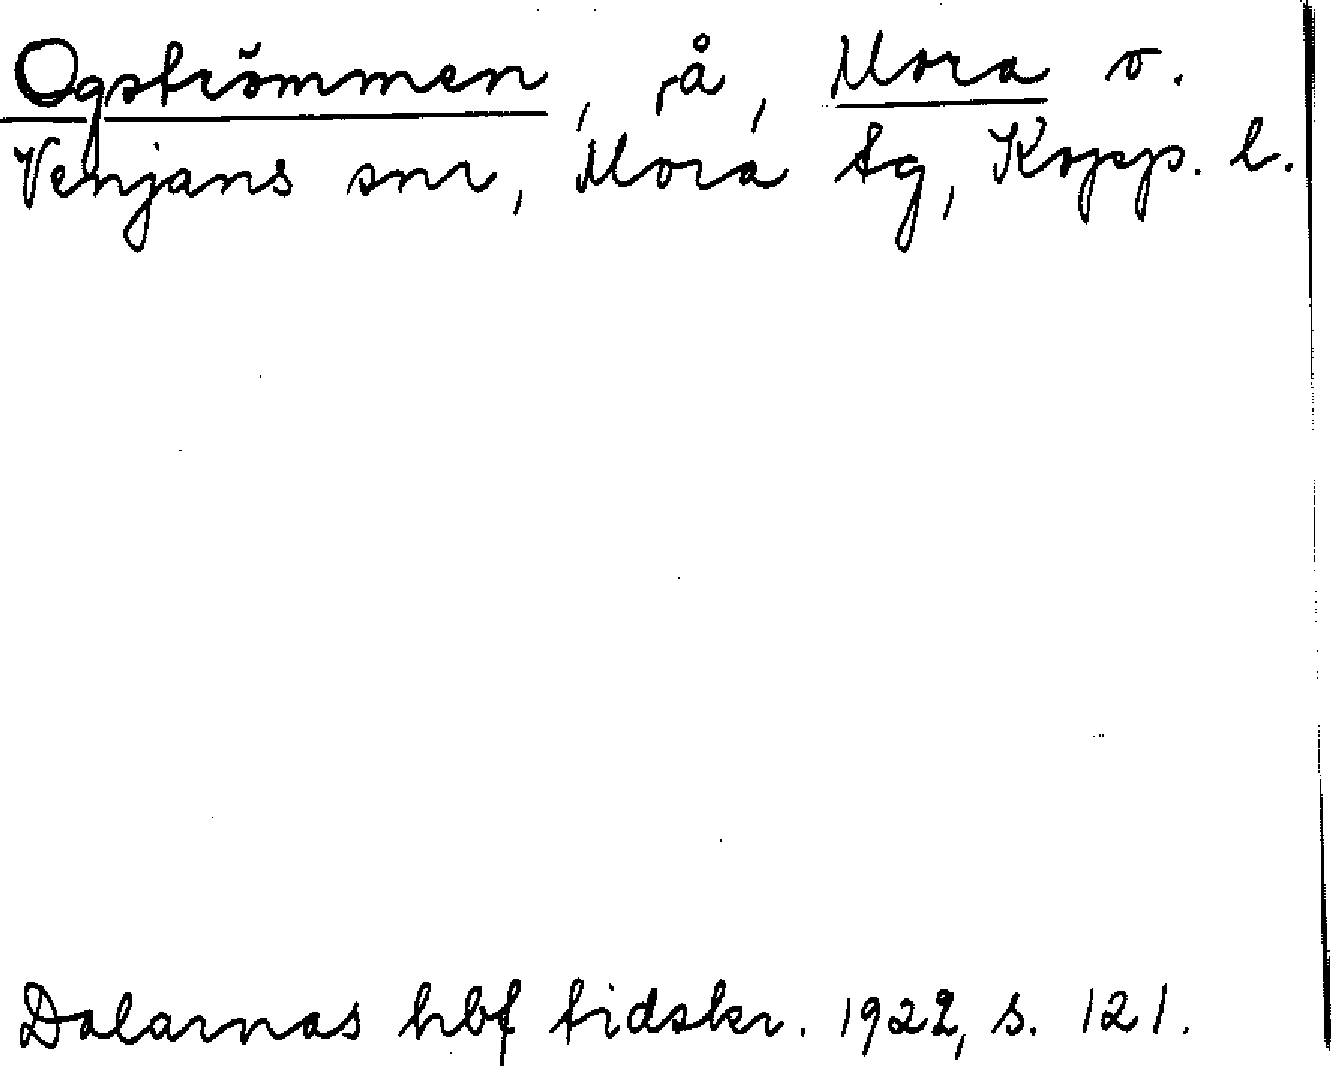 Ogströmmen, rå, Mora o.
Venjans snr, Mora tg, Kopp. l.
Dalarnas hbf tidskr. 1922, s. 121.